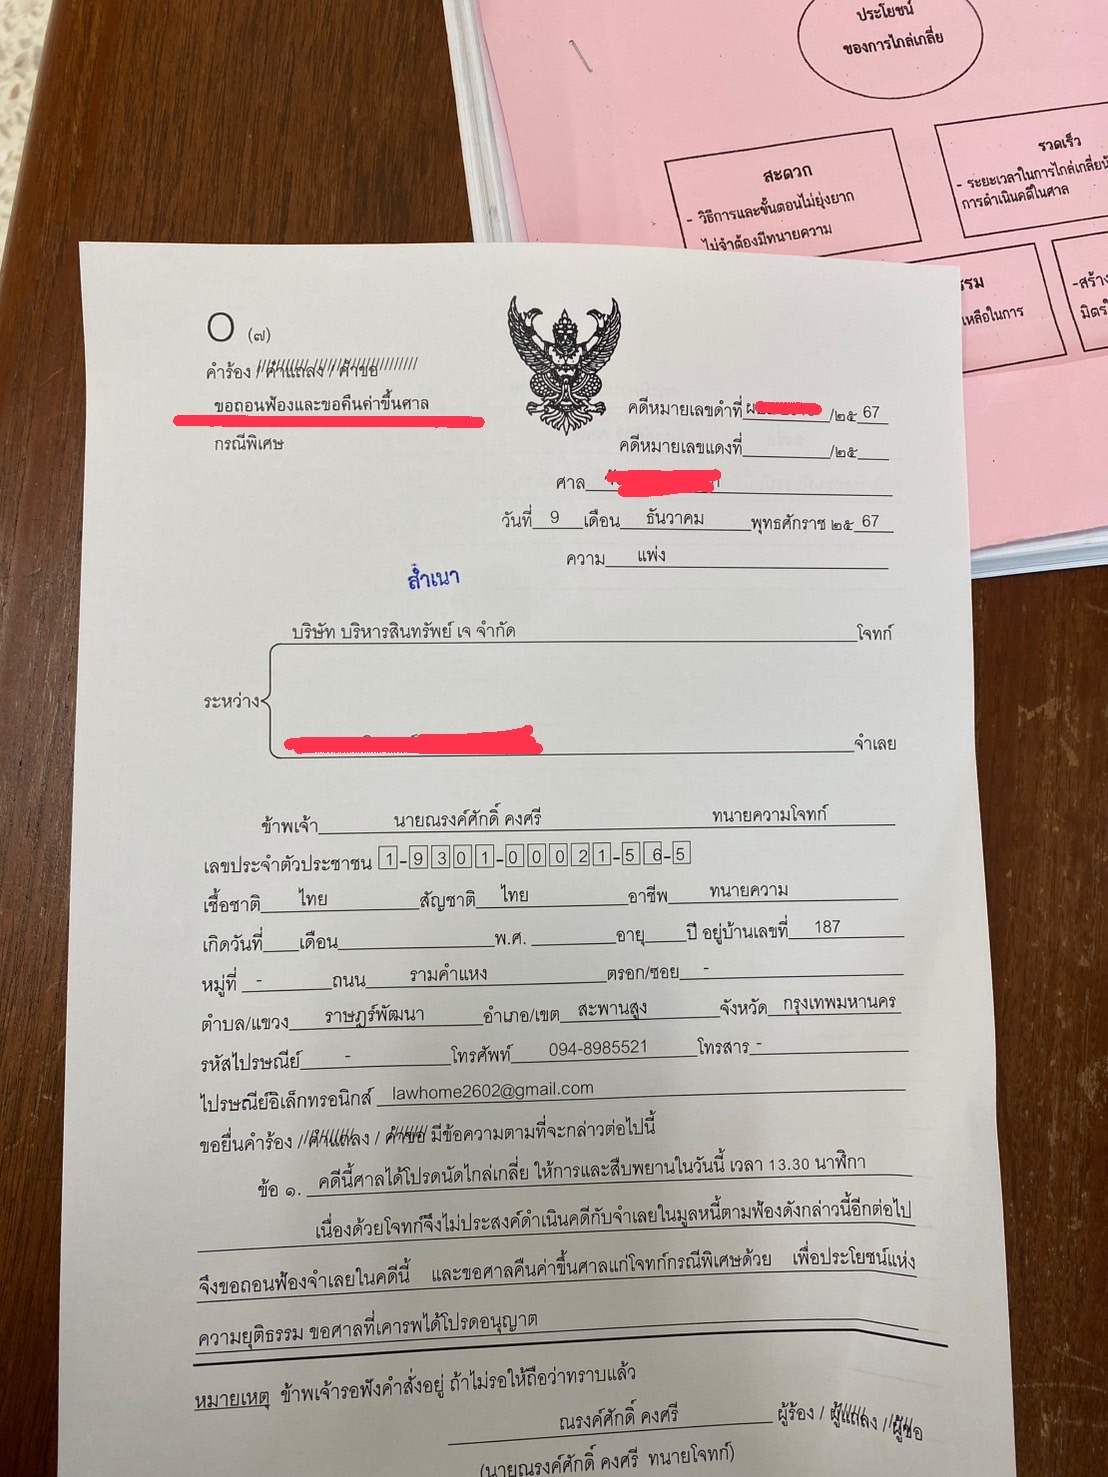 ประโยชน์
ของการไกล่เกลี่ย
สะดวก
- วิธีการและขั้นตอนไม่ยุ่งยาก
ไม่จำต้องมีทนายความ
รวดเร็ว
- ระยะเวลาในการไกล่เกลี่ย
การดำเนินคดีในศาล
รรม
เหลือในการ
-สร้าง
มิตร
O (๗)
คำร้อง / คำแถลง / คำขอ
ขอถอนฟ้องและขอคืนค่าขึ้นศาล
กรณีพิเศษ
คดีหมายเลขดำที่ /๒๕ 67
คดีหมายเลขแดงที่ /๒๕
ศาล
วันที่ 9 เดือน ธันวาคม พุทธศักราช ๒๕ 67
ความ แพ่ง
สำเนา
บริษัท บริหารสินทรัพย์ เจ จำกัด โจทก์
ระหว่าง
จำเลย
ข้าพเจ้า นายณรงค์ศักดิ์ คงศรี ทนายความโจทก์
เลขประจำตัวประชาชน 1-9301-00021-56-5
เชื้อชาติ ไทย สัญชาติ ไทย อาชีพ ทนายความ
เกิดวันที่ เดือน พ.ศ. อายุ ปี อยู่บ้านเลขที่ 187
หมู่ที่ - ถนน รามคำแหง ตรอก/ซอย -
ตำบล/แขวง ราษฎร์พัฒนา อำเภอ/เขต สะพานสูง จังหวัด กรุงเทพมหานคร
รหัสไปรษณีย์ - โทรศัพท์ 094-8985521 โทรสาร -
ไปรษณีย์อิเล็กทรอนิกส์ lawhome2602@gmail.com
ขอยื่นคำร้อง / คำแถลง / คำขอ มีข้อความตามที่จะกล่าวต่อไปนี้
ข้อ ๑. คดีนี้ศาลได้โปรดนัดไกล่เกลี่ย ให้การและสืบพยานในวันนี้ เวลา 13.30 นาฬิกา
เนื่องด้วยโจทก์จึงไม่ประสงค์ดำเนินคดีกับจำเลยในมูลหนี้ตามฟ้องดังกล่าวนี้อีกต่อไป
จึงขอถอนฟ้องจำเลยในคดีนี้ และขอศาลคืนค่าขึ้นศาลแก่โจทก์กรณีพิเศษด้วย เพื่อประโยชน์แห่ง
ความยุติธรรม ขอศาลที่เคารพได้โปรดอนุญาต
หมายเหตุ ข้าพเจ้ารอฟังคำสั่งอยู่ ถ้าไม่รอให้ถือว่าทราบแล้ว
ณรงค์ศักดิ์ คงศรี ผู้ร้อง / ผู้แถลง / ผู้ขอ
(นายณรงค์ศักดิ์ คงศรี ทนายโจทก์)